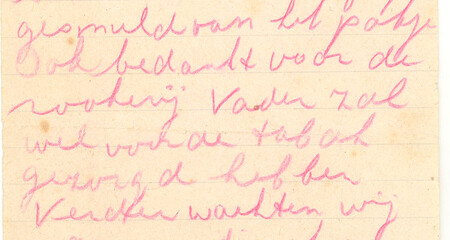 gesmuld van het pakje
Ook bedankt voor de
rookerij Vader zal
wel voor de tabak
gezorgd hebben
Verder wachten wij